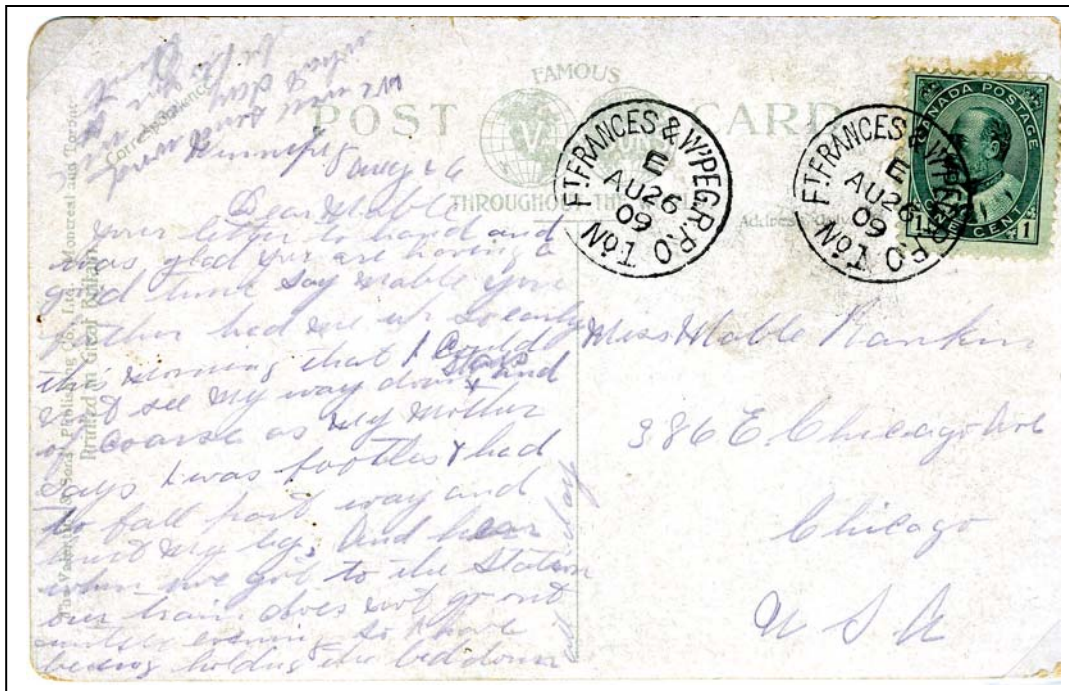 FAMOUS
POST CARD
THROUGHOUT THE
Correspondence
Address Only
The Valentine & Sons' Publishing Co., Ltd., Montreal and Toronto
Printed in Great Britain
FT. FRANCES & W'PEG. R.P.O
E
AU 26
09
No. 1
FT. FRANCES & W'PEG. R.P.O
E
AU 26
09
No. 1
CANADA POSTAGE
1 ONE CENT 1
Winnipeg
Aug 26
Dear Mable
your letter to hand and
was glad you are having a
good time say mable your
father had me up so early
this morning that I could
not see my way down stairs and
of coarse as my mother
says I was footles & had
to fall part way and
hurt my leg, And hear
when we got to the Station
our train does not go out
untill evening so I have
being holding the bed down
all day
we will
what
Miss Mable Rankin
386 E Chicago Ave
Chicago
U S A